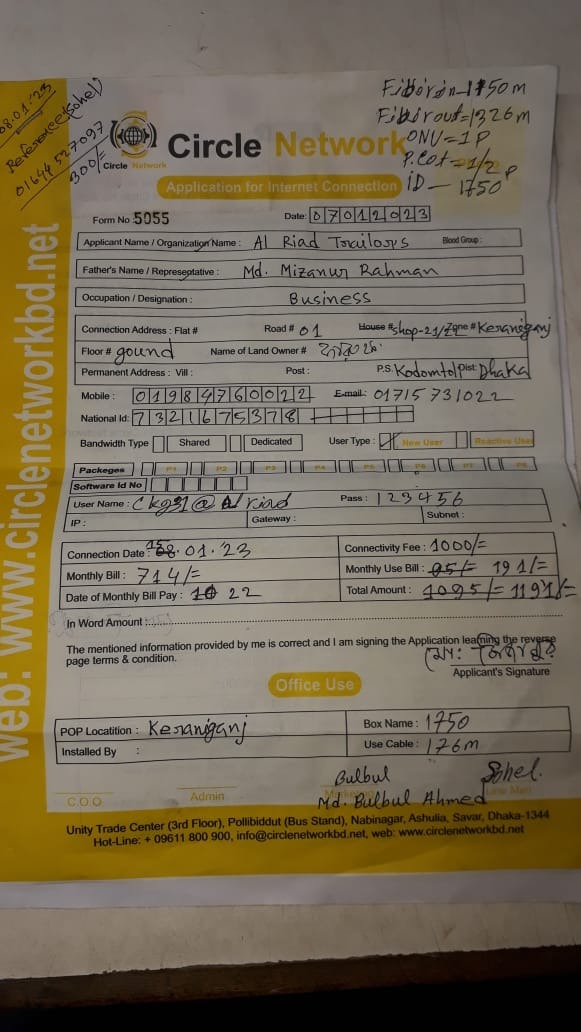 08.01.23
Reference (Sohel)
01644527097
300/-
Fiber in - 1750m
Fiber out = 1326m
ONU = 1P
P.Cot = 1/2 P
ID - 1750
Circle Network
Circle Network
Application for Internet Connection
Form No 5055
Date: 07012023
Applicant Name / Organization Name : Al Riad Trailors Blood Group :
Father's Name / Represetative : Md. Mizanur Rahman
Occupation / Designation : Business
Connection Address : Flat # Road # 01 House # shop-21/ Zone # Keranigonj
Floor # gound Name of Land Owner #
Permanent Address : Vill : Post : P.S. Kodomtol Dist: Dhaka
Mobile : 01984760022 E-mail: 01715731022
National Id: 7321675378
Bandwidth Type Shared Dedicated User Type : New User Reactive User
Packeges P1 P2 P3 P4 P5 P6 P7 P8
Software Id No
User Name : Ckg31@Al riad Pass : 123456
IP : Gateway : Subnet :
Connection Date : 15 08.01.23 Connectivity Fee : 1000/=
Monthly Bill : 714/= Monthly Use Bill : 95/= 191/=
Date of Monthly Bill Pay : 10 22 Total Amount : 1095/= 1191/=
In Word Amount :
The mentioned information provided by me is correct and I am signing the Application learning the reverse
page terms & condition.
Applicant's Signature
Office Use
POP Locatition : Keraniganj Box Name : 1750
Installed By : Use Cable : 176m
Bulbul Sohel.
C.O.O Admin Line Man
Md. Bulbul Ahmed
Unity Trade Center (3rd Floor), Pollibiddut (Bus Stand), Nabinagar, Ashulia, Savar, Dhaka-1344
Hot-Line: + 09611 800 900, info@circlenetworkbd.net, web: www.circlenetworkbd.net
web: www.circlenetworkbd.net